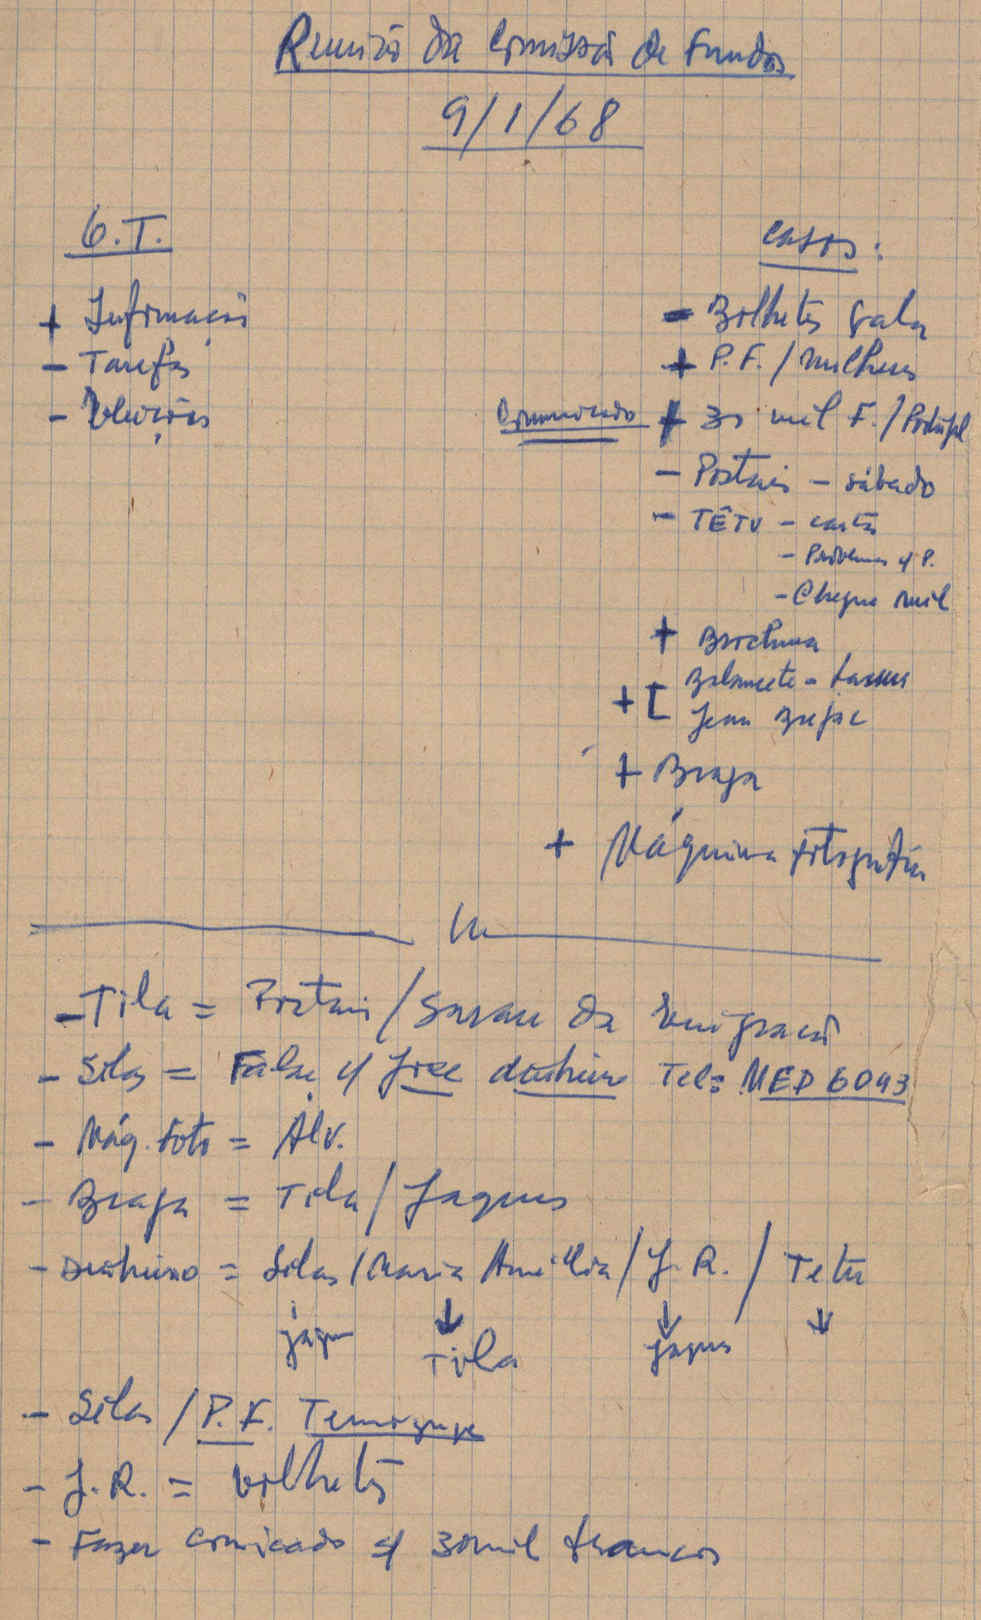 Reunião da Comissão de Fundos
9/1/68
O.T.
+ Informação
- Tarefas
-
Casos:
- Bilhetes gala
+ P.F. / Mulheres
Comunicado + 30 mil F. / Portugal
- Postais - sábado
- TÉTU - cartas
- Problemas c/ P.
- Cheque mil
+ Brochura
+ [ Balancete -
Jean
+ Braga
+ Máquina fotográfica
- Tila = Postais / Sarau da Emigração
- Silas = Falar c/ José dinheiro Tel: MED 6043
- Máq. foto = Álv.
- Braga = Tila / Jaques
- Dinheiro = Silas / Maria Amélia / J. R. / Tetu
↓ ↓ ↓
Jaques Tila Jaques
- Silas / P. F.
- J. R. = bilhetes
- Fazer comicado c/ 30 mil francos